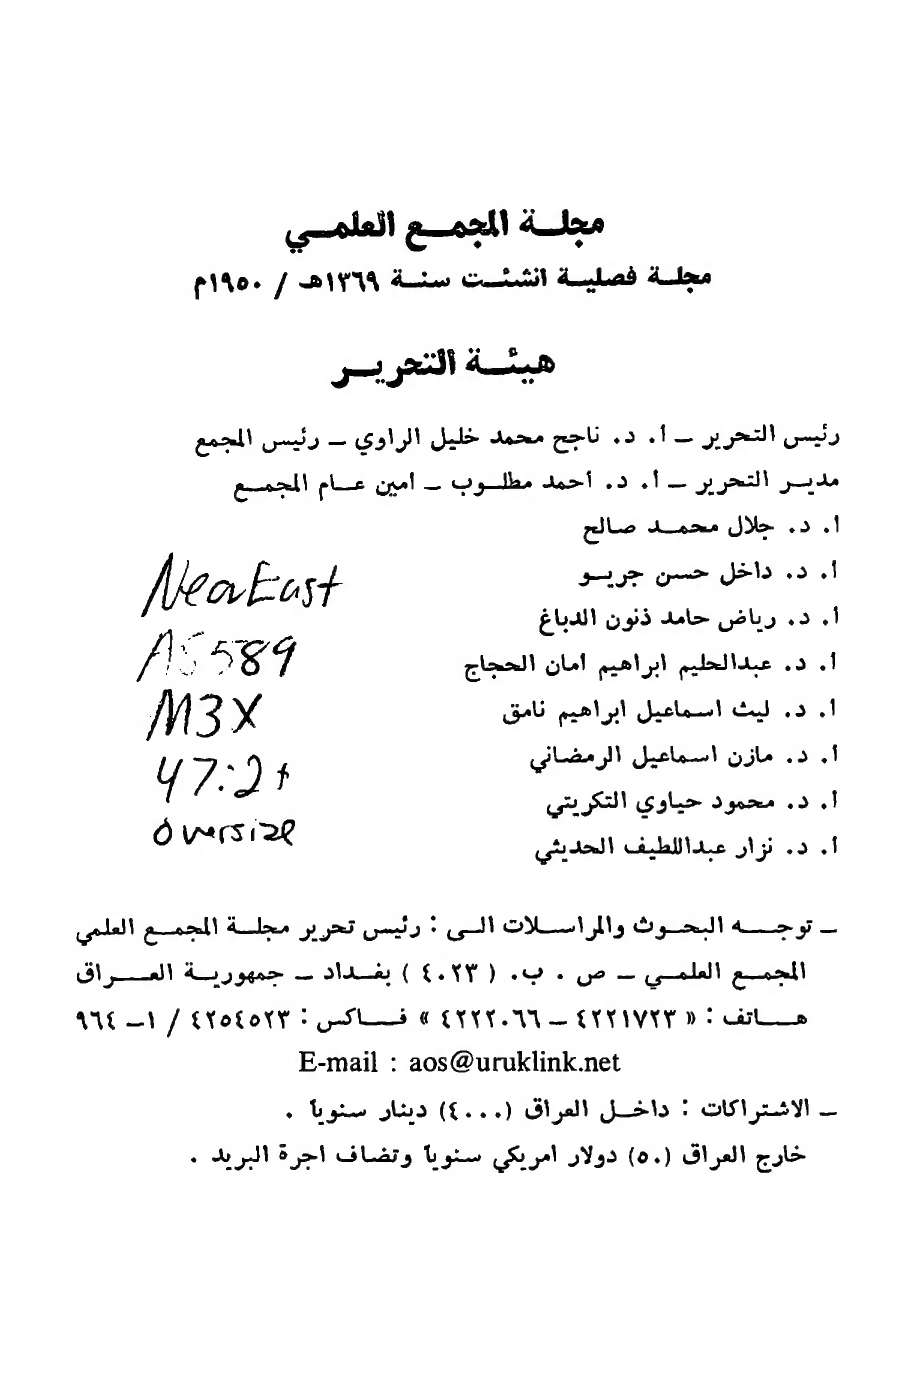 مجلة المجمع العلمي
مجلة فصلية انشئت سنة ١٣٦٩هـ / ١٩٥٠م
هيئة التحرير
رئيس التحرير – أ. د. ناجح محمد خليل الراوي – رئيس المجمع
مدير التحرير – أ. د. أحمد مطلوب – أمين عام المجمع
أ. د. جلال محمد صالح
أ. د. داخل حسن جريو
أ. د. رياض حامد ذنون الدباغ
أ. د. عبدالحليم ابراهيم أمان الحجاج
أ. د. ليث اسماعيل ابراهيم نامق
أ. د. مازن اسماعيل الرمضاني
أ. د. محمود حياوي التكريتي
أ. د. نزار عبداللطيف الحديثي
Near East
AS589
M3X
47:2+
oversize
– توجه البحوث والمراسلات الى : رئيس تحرير مجلة المجمع العلمي
المجمع العلمي – ص . ب. ( ٤٠٢٣ ) بغداد – جمهورية العراق
هاتف : « ٤٢٢١٧٢٣ – ٤٢٢٢٠٦٦ » فاكس : ٤٢٥٤٥٢٣ / ١– ٩٦٤
E-mail : aos@uruklink.net
– الاشتراكات : داخل العراق (٤٠٠٠) دينار سنوياً .
خارج العراق (٥٠) دولار امريكي سنوياً وتضاف اجرة البريد .